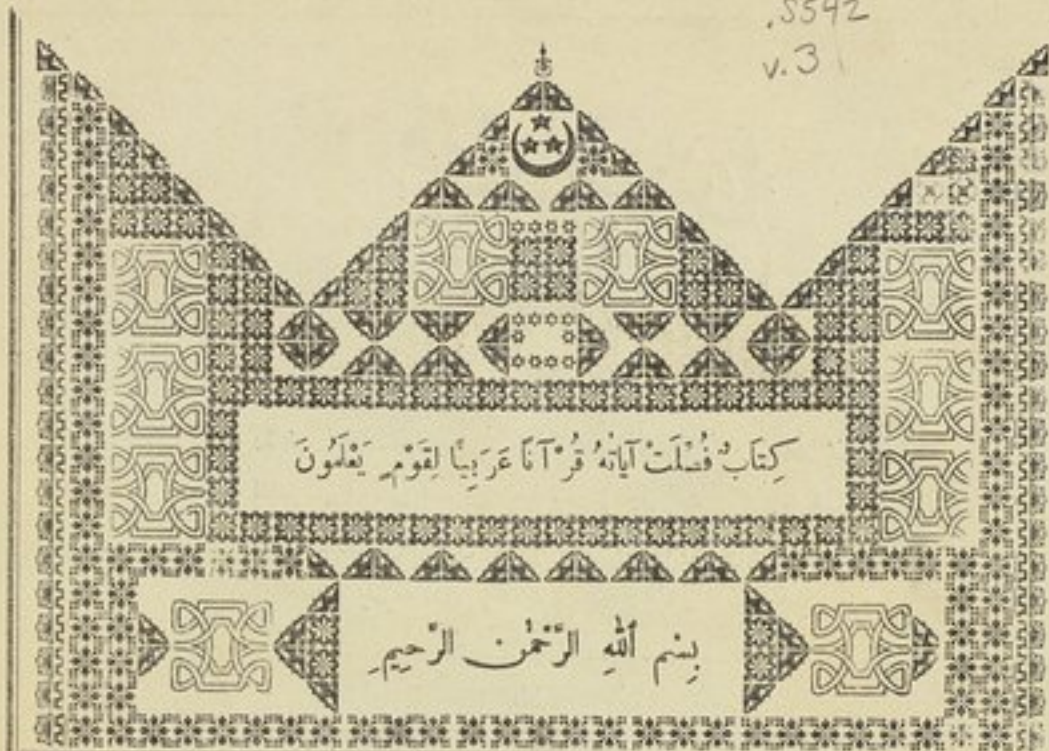 .S542
v.3
كِتَابٌ فُصِّلَتْ آيَاتُهُ قُرْآنًا عَرَبِيًّا لِقَوْمٍ يَعْلَمُونَ
بِسْمِ ٱللّٰهِ الرَّحْمٰنِ الرَّحِيمِ